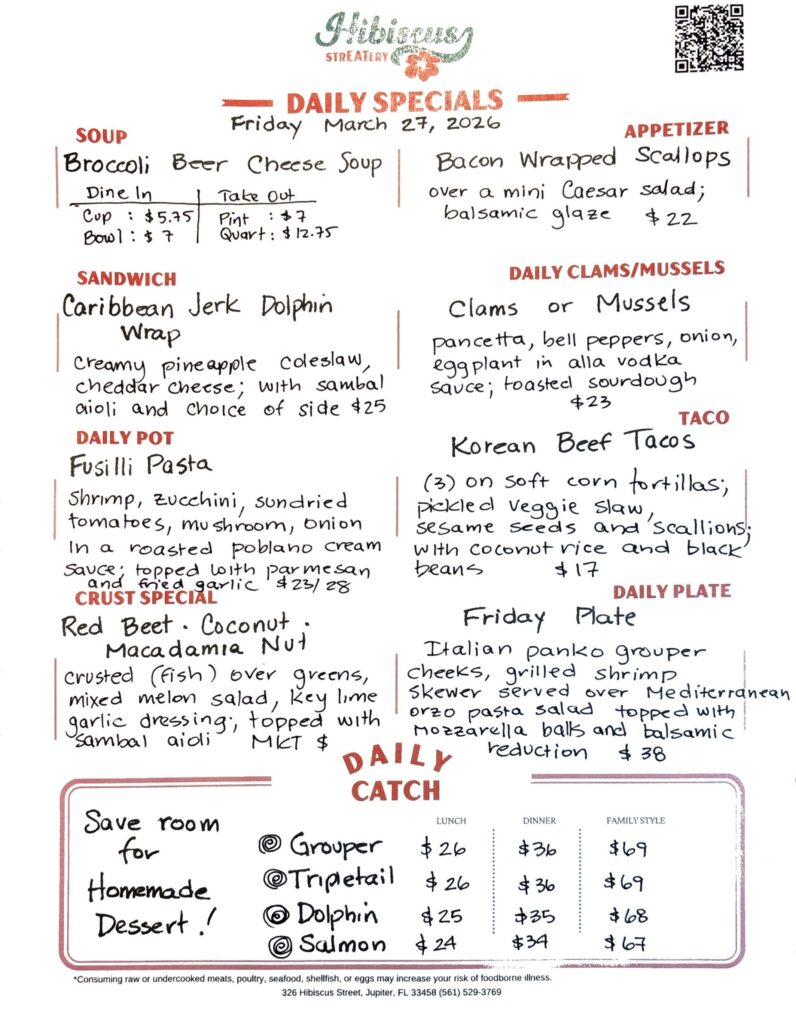 Hibiscus
STREATERY
DAILY SPECIALS
Friday March 27, 2026
SOUP
Broccoli Beer Cheese Soup
Dine In Take Out
Cup : $5.75 Pint : $7
Bowl : $7 Quart : $12.75
APPETIZER
Bacon Wrapped Scallops
over a mini Caesar salad;
balsamic glaze $22
SANDWICH
Caribbean Jerk Dolphin
Wrap
creamy pineapple coleslaw,
cheddar cheese; with sambal
aioli and choice of side $25
DAILY CLAMS/MUSSELS
Clams or Mussels
pancetta, bell peppers, onion,
eggplant in alla vodka
sauce; toasted sourdough
$23
DAILY POT
Fusilli Pasta
shrimp, zucchini, sundried
tomatoes, mushroom, onion
in a roasted poblano cream
sauce; topped with parmesan
and fried garlic $23/28
TACO
Korean Beef Tacos
(3) on soft corn tortillas;
pickled veggie slaw,
sesame seeds and scallions;
with coconut rice and black
beans $17
CRUST SPECIAL
Red Beet · Coconut ·
Macadamia Nut
crusted (fish) over greens,
mixed melon salad, key lime
garlic dressing; topped with
sambal aioli MKT $
DAILY PLATE
Friday Plate
Italian panko grouper
cheeks, grilled shrimp
skewer served over Mediterranean
orzo pasta salad topped with
mozzarella balls and balsamic
reduction $38
DAILY
CATCH
Save room
for
Homemade
Dessert!
LUNCH DINNER FAMILY STYLE
Grouper $26 $36 $69
Tripletail $26 $36 $69
Dolphin $25 $35 $68
Salmon $24 $34 $67
*Consuming raw or undercooked meats, poultry, seafood, shellfish, or eggs may increase your risk of foodborne illness.
326 Hibiscus Street, Jupiter, FL 33458 (561) 529-3769